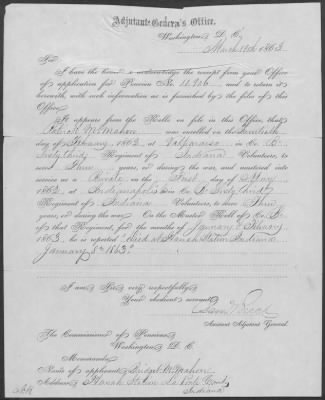 Adjutant General's Office,
Washington, D. C.,
March 19th 1863.
Sir:
I have the honor to acknowledge the receipt from your Office
of application for Pension No. 11,926 and to return it
herewith, with such information as is furnished by the files of this
Office.
It appears from the Rolls on file in this Office, that
McMahon was enrolled on the
day of February 1862 at Valparaiso in Co.
Sixty Third Regiment of Indiana Volunteers, to
serve Three years, or during the war, and mustered into
service as a Private on the First day of
1862, at Indianapolis in Co. Sixty Third
Regiment of Indiana Volunteers, to serve Three
years, or during the war. On the Muster Roll of Co.
of that Regiment, for the months of January & February
1863, he is reported "Died at Hanah Station Indiana
January 8th 1863."
I am Sir, very respectfully,
Your obedient servant,
Assistant Adjutant General.
The Commissioner of Pensions,
Washington, D. C.
Memoranda:
Name of applicant, Bridget McMahon
Address Hanah Station La Porte County
Indiana